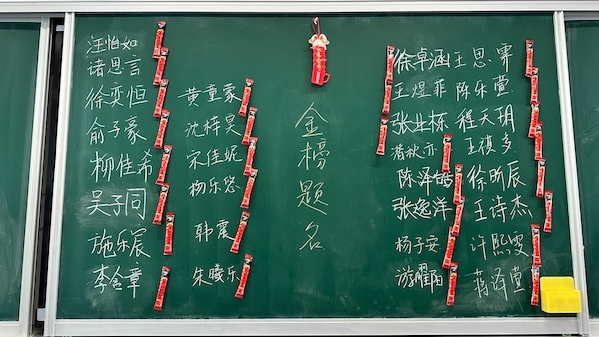 汪怡如
诸思言
徐奕恒
俞子豪
柳佳希
吴子同
施乐宸
李含章
黄童蒙
沈梓昊
宋佳妮
杨乐悠
韩震
朱曦乐
金榜题名
徐卓涵 王思霁
王煜菲 陈乐萱
张业栋 程天玥
蒋秋亦 王祺多
陈泽皓 徐昕辰
张逸洋 王诗杰
杨子安 许熙雯
游曜阳 蒋泽萱